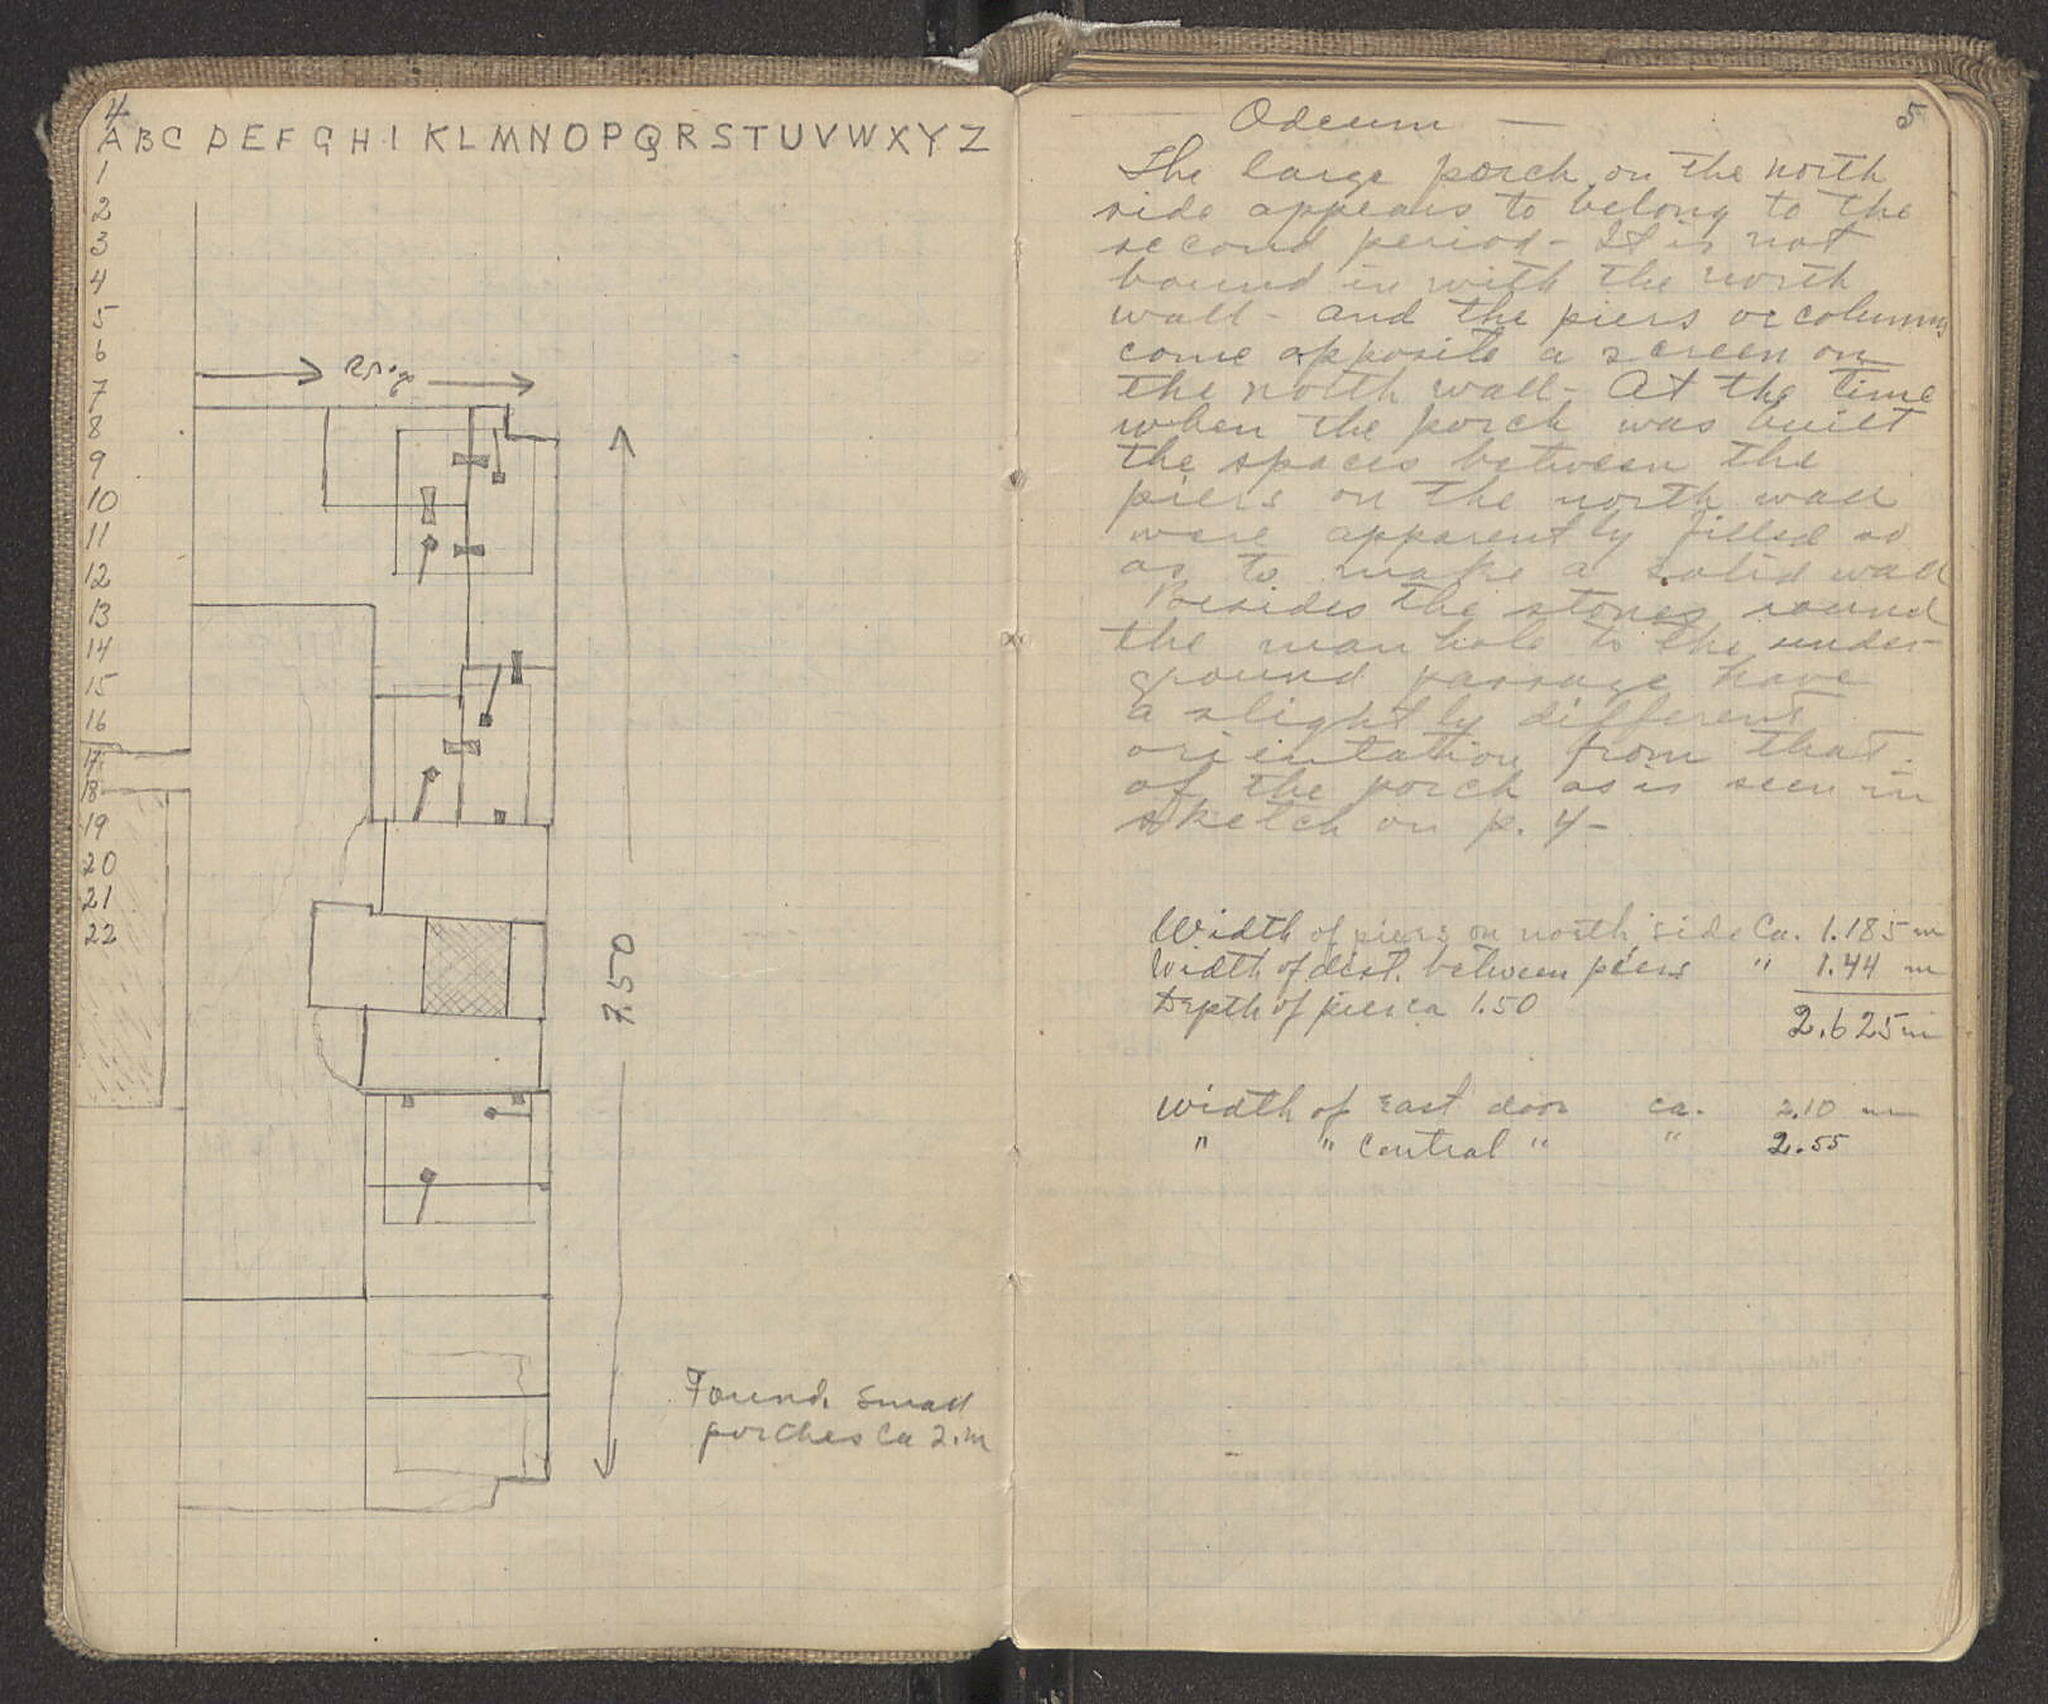 4
A B C D E F G H I K L M N O P Q R S T U V W X Y Z
1
2
3
4
5
6
7
8
9
10
11
12
13
14
15
16
17
18
19
20
21
22
7.50
Found. Small
porches Ca 2.m
Odeum — 5
The large porch on the north
side appears to belong to the
second period - It is not
bound in with the north
wall - and the piers or columns
come opposite a screen on
the north wall - At the time
when the porch was built
the spaces between the
piers on the north wall
were apparently filled so
as to make a solid wall
Besides the stones round
the man hole to the under-
ground passage have
a slightly different
orientation from that
of the porch as is seen in
sketch on p. 4 -
Width of piers on north side Ca. 1.185 m
Width of dist. between piers " 1.44 m
Depth of piers ca 1.50
2.625 m
Width of East door ca. 2.10 m
" " Central " " 2.55